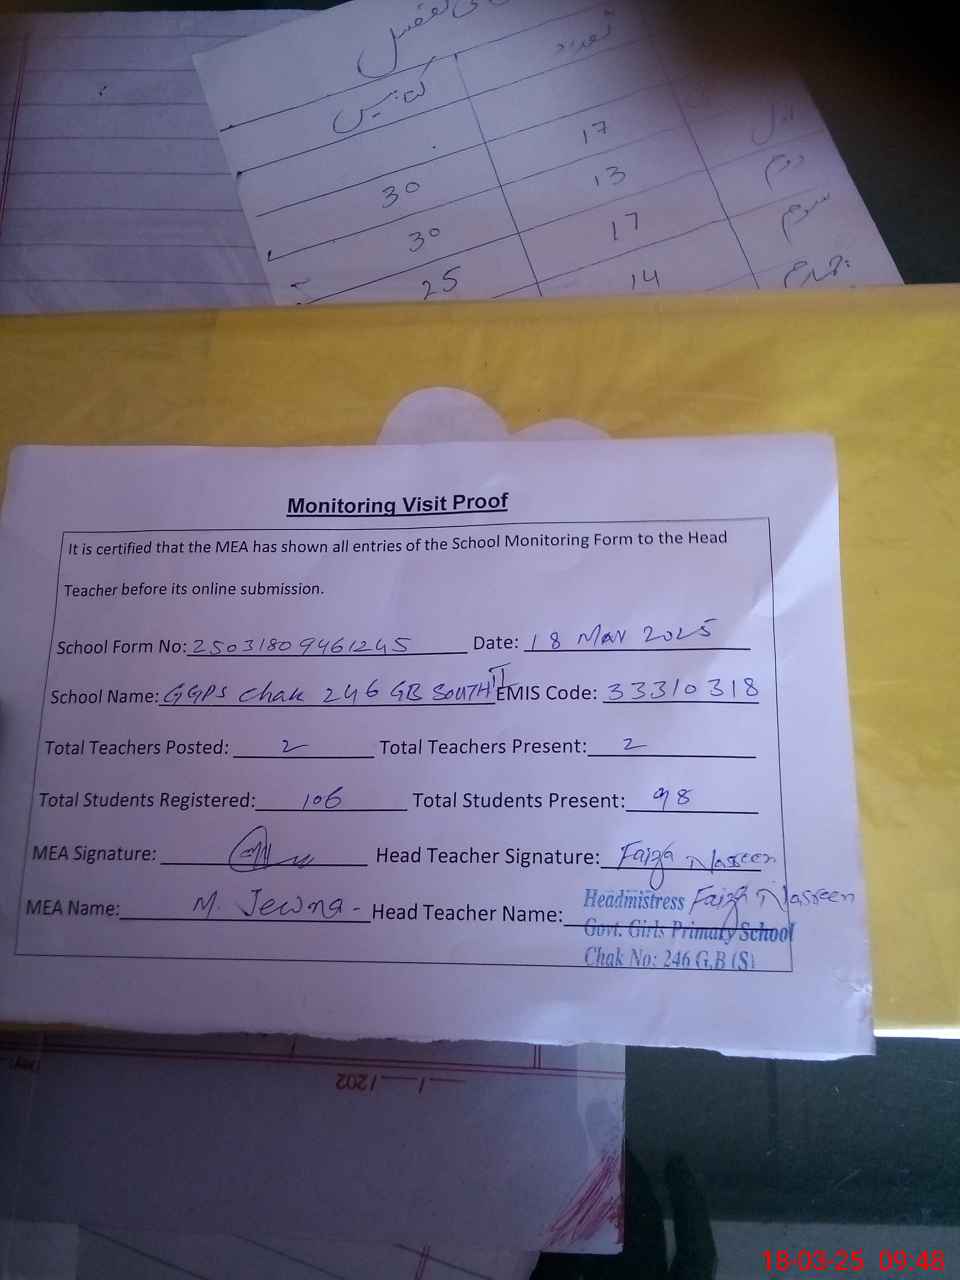 کی تفصیل
کتابیں تعداد
17 اول
30 13 دوم
30 17 سوم
25 14 چہارم
Monitoring Visit Proof
It is certified that the MEA has shown all entries of the School Monitoring Form to the Head
Teacher before its online submission.
School Form No: 25031809461245 Date: 18 Mar 2025
School Name: GGPS Chak 246 GB SOUTH II EMIS Code: 33310318
Total Teachers Posted: 2 Total Teachers Present: 2
Total Students Registered: 106 Total Students Present: 98
MEA Signature: Head Teacher Signature: Faiza Nasreen
MEA Name: M. Head Teacher Name: Faiza Nasreen
Headmistress
Govt. Girls Primary School
Chak No: 246 G.B (S)
/ /202
18-03-25 09:48